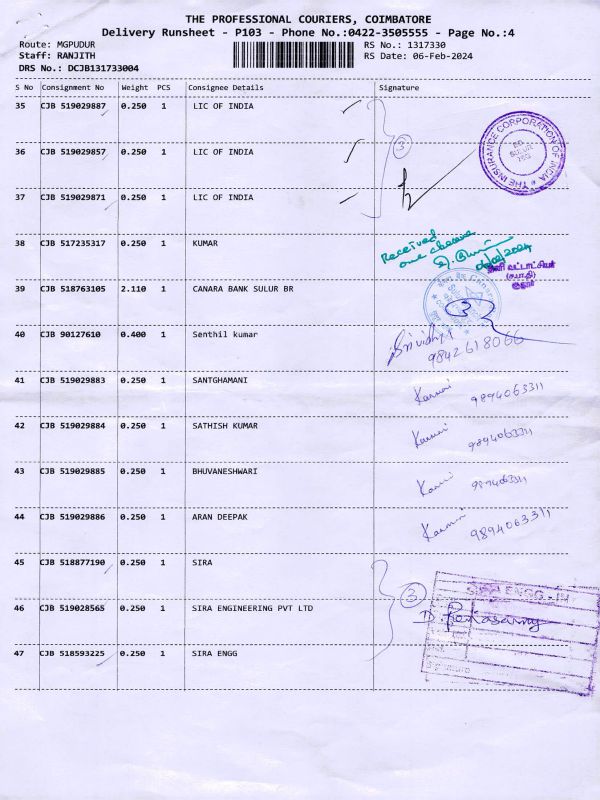 THE PROFESSIONAL COURIERS, COIMBATORE
Delivery Runsheet - P103 - Phone No.:0422-3505555 - Page No.:4
Route: MGPUDUR RS No.: 1317330
Staff: RANJITH RS Date: 06-Feb-2024
DRS No.: DCJB131733004
S No Consignment No Weight PCS Consignee Details Signature
35 CJB 519029887 0.250 1 LIC OF INDIA
36 CJB 519029857 0.250 1 LIC OF INDIA
3
THE INSURANCE CORPORATION OF INDIA
SULUR
37 CJB 519029871 0.250 1 LIC OF INDIA
38 CJB 517235317 0.250 1 KUMAR
Received
one
39 CJB 518763105 2.110 1 CANARA BANK SULUR BR
40 CJB 90127610 0.400 1 Senthil kumar
Srividhya
9842618066
41 CJB 519029883 0.250 1 SANTGHAMANI
9894063311
42 CJB 519029884 0.250 1 SATHISH KUMAR
9894063311
43 CJB 519029885 0.250 1 BHUVANESHWARI
9894063311
44 CJB 519029886 0.250 1 ARAN DEEPAK
9894063311
45 CJB 518877190 0.250 1 SIRA
3
46 CJB 519028565 0.250 1 SIRA ENGINEERING PVT LTD
47 CJB 518593225 0.250 1 SIRA ENGG